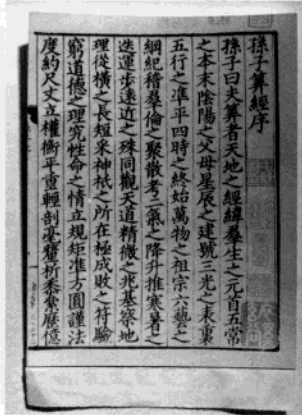 孫子筭經序
孫子曰夫筭者天地之經緯羣生之元首五常
之本末陰陽之父母星辰之建號三光之表裏
五行之準平四時之終始萬物之祖宗六藝之
綱紀稽羣倫之聚散考二氣之降升推寒暑之
迭運步遠近之殊同觀天道精微之兆基察地
理從橫之長短采神祇之所在極成敗之符驗
窮道德之理究性命之情立規矩準方圓謹法
度約尺丈立權衡平重輕剖毫釐析黍絫歷億